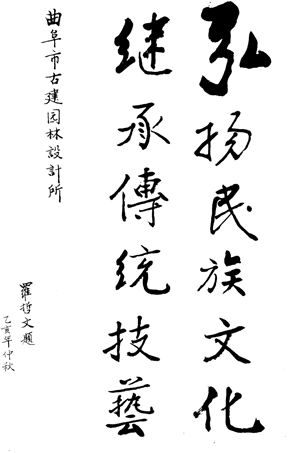 弘扬民族文化
继承傳统技藝
曲阜市古建园林設計所
羅哲文題
乙亥年仲秋